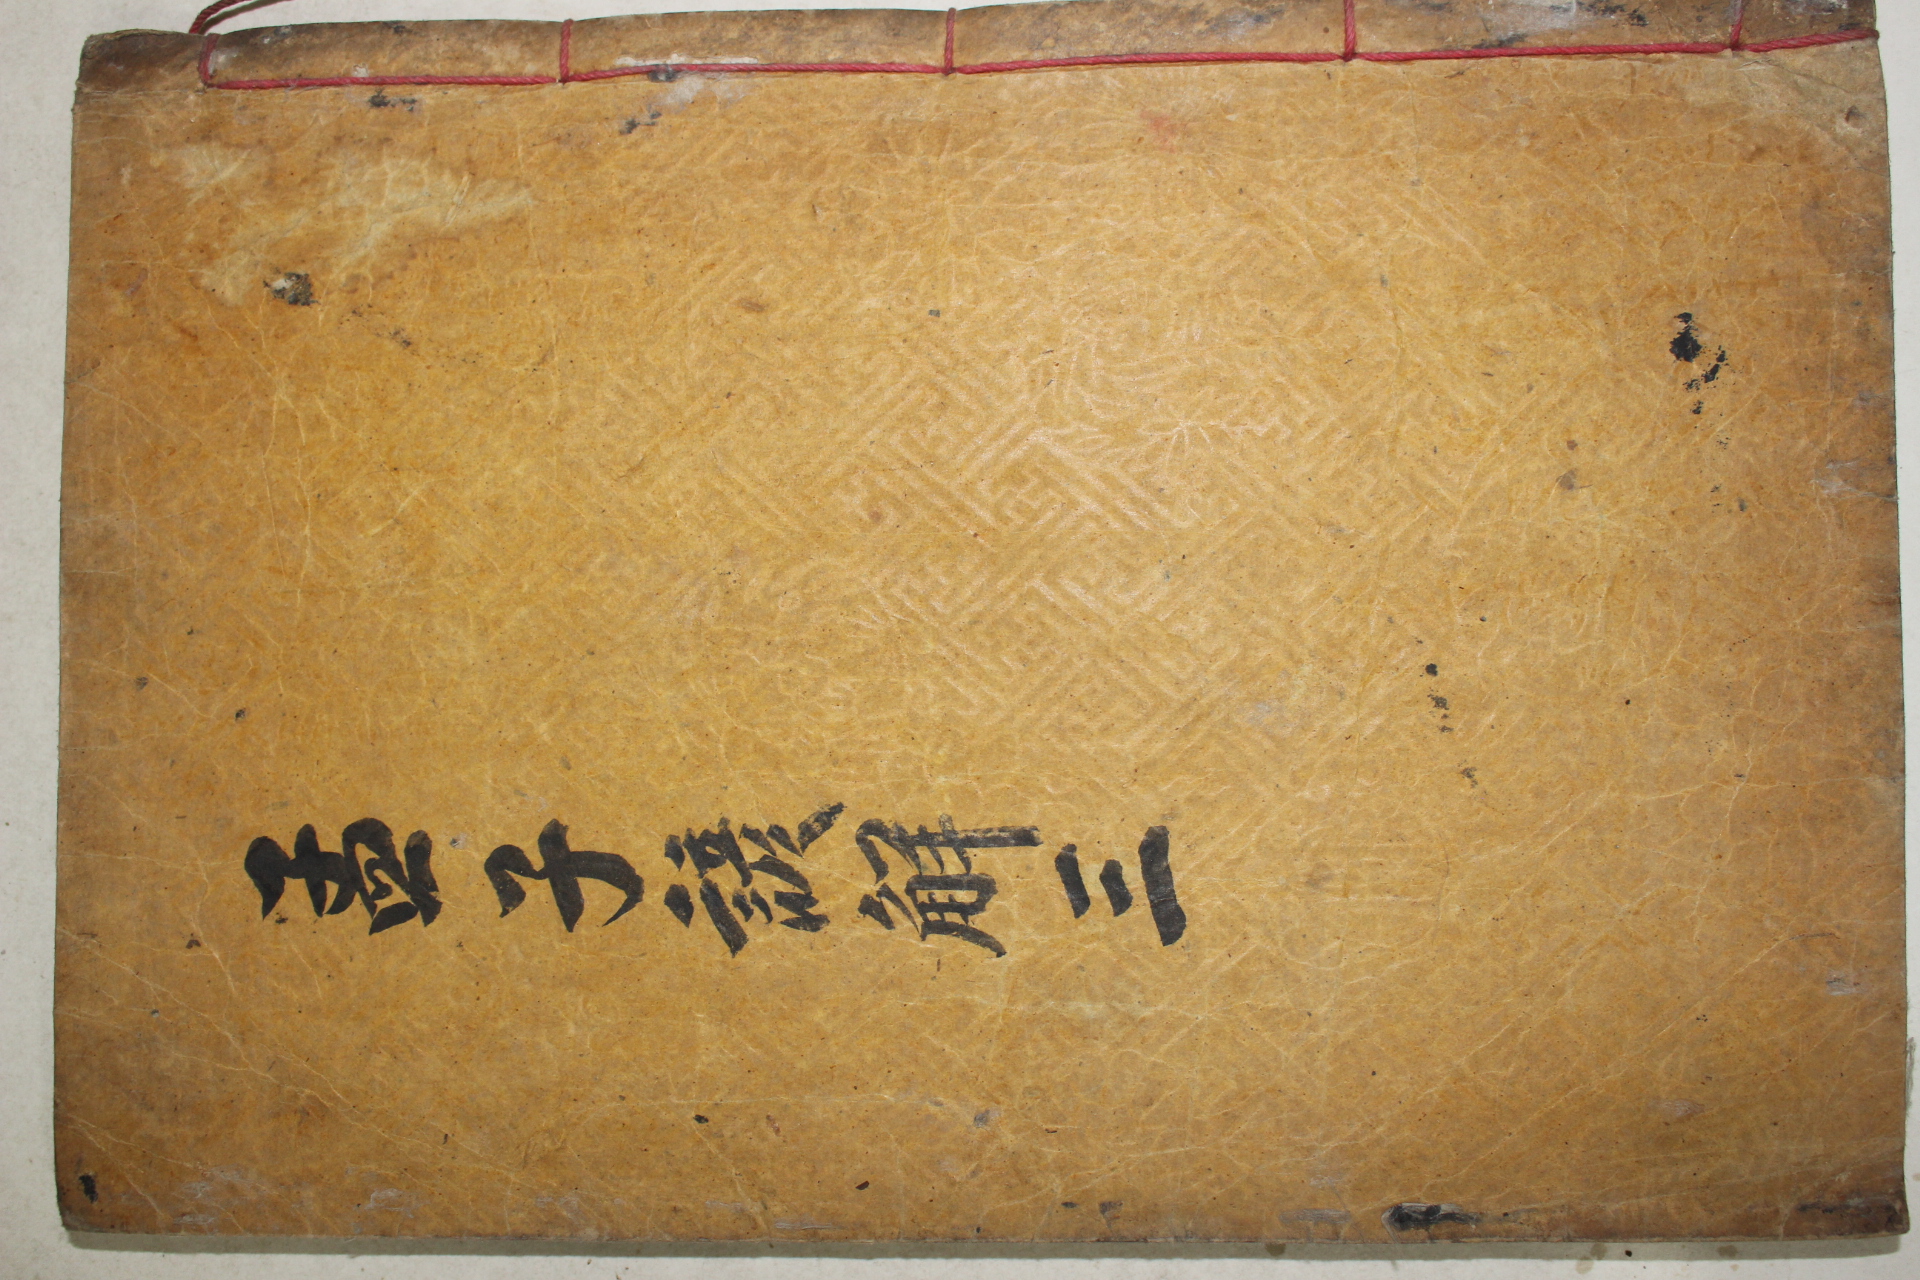 孟子諺解 三